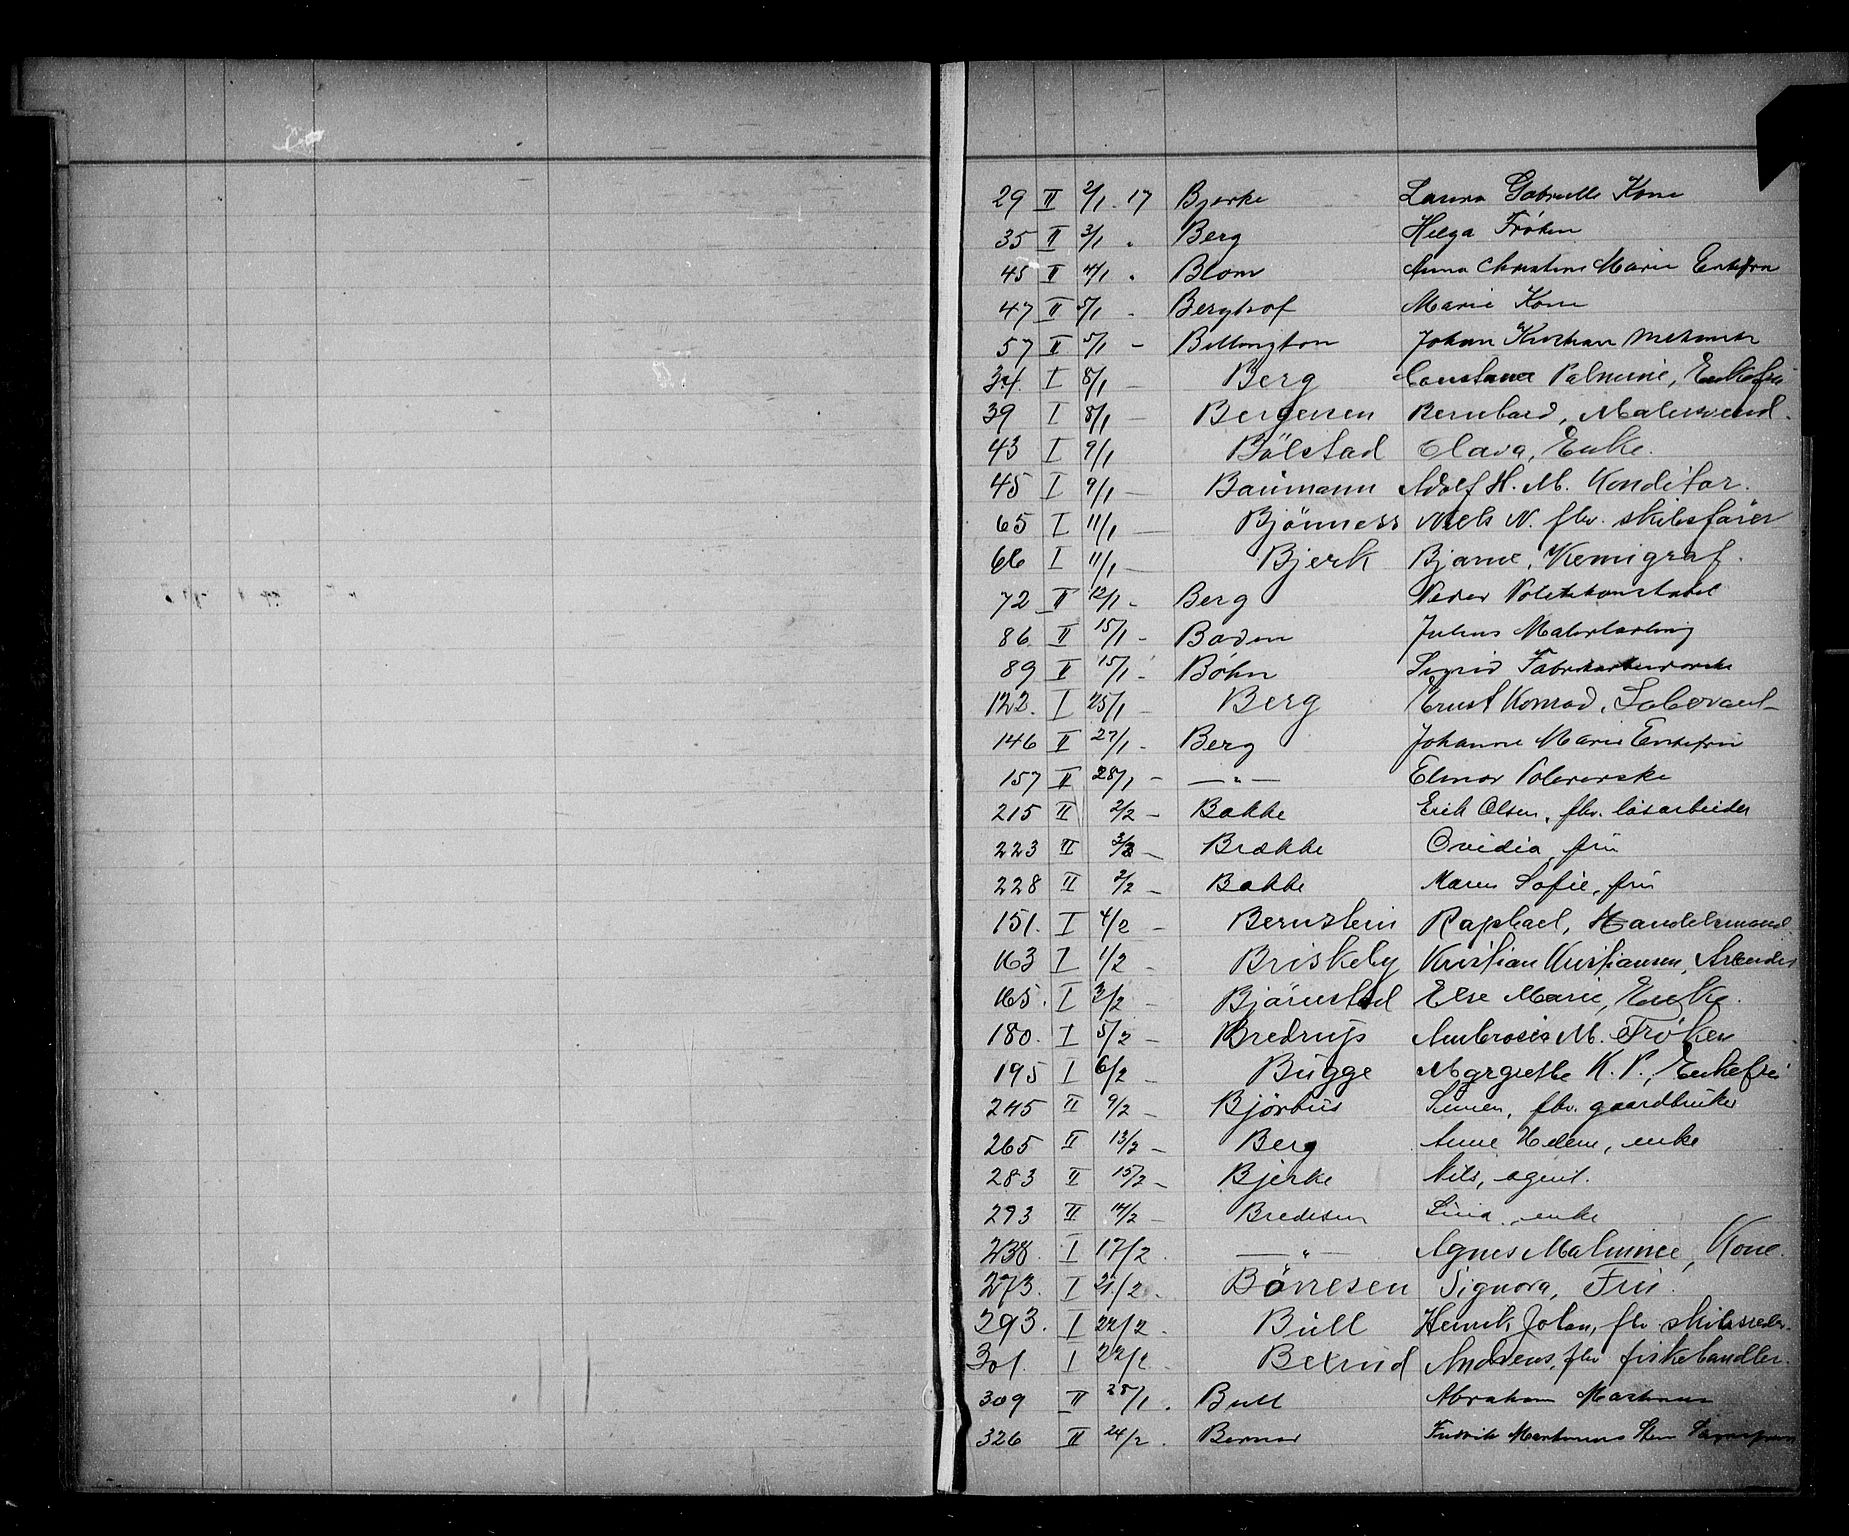 29 II 2/1. 17 Bjerke Laura Gabrielle Kone
35 II 3/1 " Berg Helga Frøken
45 II 4/1 " Blom Anna Christine Marie Enkefru
47 II 5/1 - Berghof Marie Kone
57 II 5/1 - Billington Johan Kristian
34. I 8/1 - Berg Constance Palmine, Enkefru
39 I 8/1 - Bergersen Bernhard, Malersvend.
43 I 9/1 Bölstad Olava, Enke.
45 I 9/1 - Baumann Adolf H. M. Konditor.
65 I 11/1 - Bjönness Niels N. fhv. skibsfører
66 I 11/1 - Bjerk Bjarne, Kemigraf.
72 II 12/1 - Berg Peder Politikonstabel
86. II 15/1 - Baden Julius Malerlærling
89 II 15/1 - Bøhn Sigrid Fabrikarbeiderske
122. I 25/1 - Berg Ernst Konrad,
146 II 27/1 - Berg Johanne Marie Enkefru
157 II 28/1 - —"— Elinor Polererske
215 II 2/2 - Bakke Erik Olsen, fhv. løsarbeider
223 II 3/2 - Brække Ovidia, fru
228 II 2/2 - Bakke Maren Sofie, fru
151. I 4/2 - Bernstein Raphael, Handelsmand.
163 I 1/2 - Briskeby Kristian Kristiansen, Arbeider
165. I 3/2 - Bjørnstad Else Marie, Enke.
180. I 5/2 - Bredrup Ambrosia M. Frøken
195 I 6/2 - Bugge Margrethe K. P., Enkefru
245 II 9/2 - Bjørhus Simen, fhv. gaardbruker
265 II 13/2 - Berg Anne Helene, enke
283 II 15/2 - Bjerke Nils, agent.
293 II 14/2 - Bredesen Lina, enke
238. I 17/2. —"— Agnes Malminee, Kone.
273. I 21/2. Börresen Signora, Fru.
293. I 22/2. Bull Henrik Johan, fhv. skibsreder.
301. I 22/2. Andreas, fhv fiskehandler.
309 II 28/1. Bull Abraham Martinus
326 II 24/2. Berner Fredrik